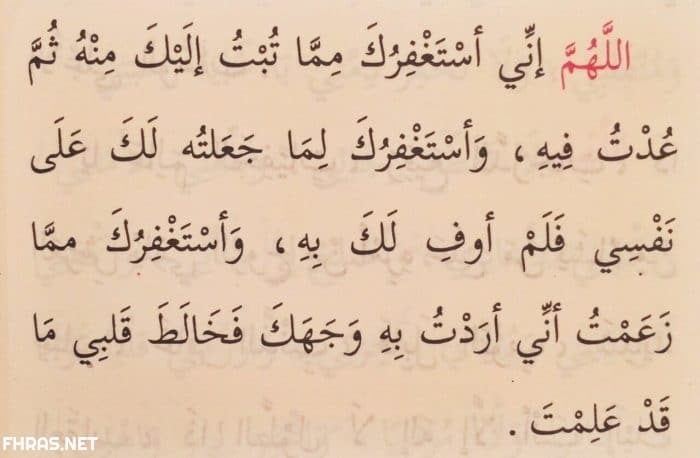 اللَّهُمَّ إنِّي أسْتَغْفِرُكَ مِمَّا تُبْتُ إلَيْكَ مِنْهُ ثُمَّ
عُدْتُ فِيهِ، وَأسْتَغْفِرُكَ لِمَا جَعَلتُه لَكَ عَلَى
نَفْسِي فَلَمْ أوفِ لَكَ بِهِ، وَأسْتَغْفِرُكَ ممَّا
زَعَمْتُ أنِّي أرَدْتُ بِهِ وَجَهَكَ فَخَالَطَ قَلبِي مَا
قَدْ عَلِمْتَ .
FHRAS.NET